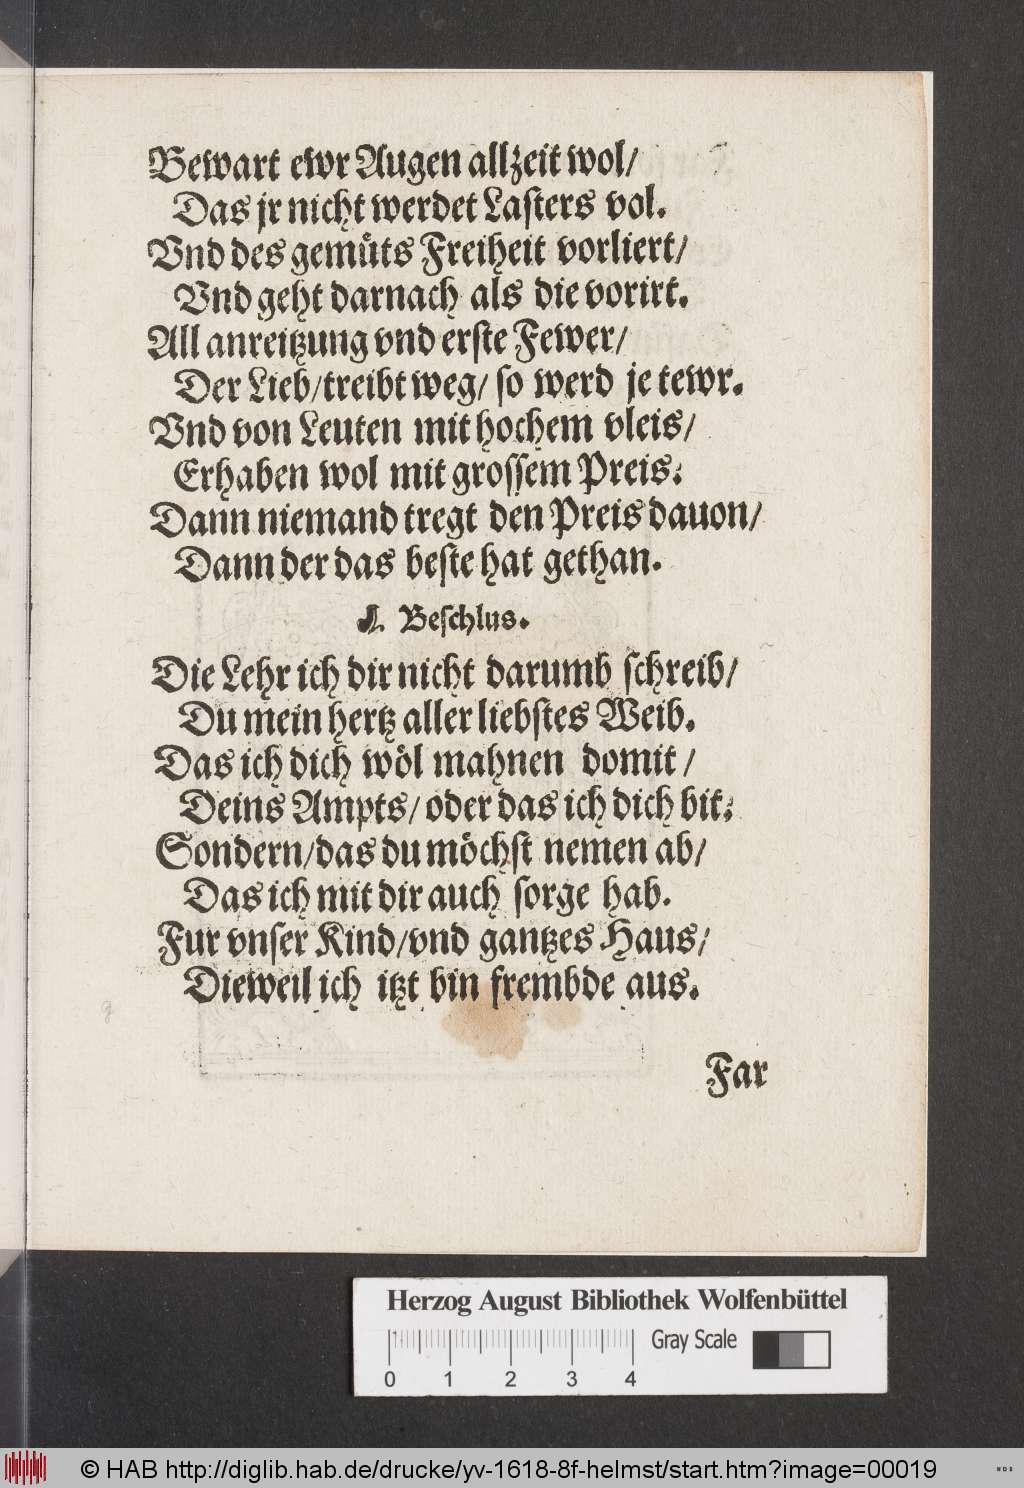 Bewart ewr Augen allzeit wol/
Das jr nicht werdet Lasters vol.
Vnd des gemüts Freiheit vorliert/
Vnd geht darnach als die vorirt.
All anreitzung vnd erste Fewer/
Der Lieb/treibt weg/ so werd je tewr.
Vnd von Leuten mit hochem vleis/
Erhaben wol mit grossem Preis:
Dann niemand tregt den Preis dauon/
Dann der das beste hat gethan.
Beschlus.
Die Lehr ich dir nicht darumb schreib/
Du mein hertz aller liebstes Weib.
Das ich dich wöl mahnen domit/
Deins Ampts/ oder das ich dich bit:
Sondern/das du möchst nemen ab/
Das ich mit dir auch sorge hab.
Fur vnser Kind/vnd gantzes Haus/
Dieweil ich itzt bin frembde aus.
Far
Herzog August Bibliothek Wolfenbüttel
Gray Scale
0 1 2 3 4
© HAB http://diglib.hab.de/drucke/yv-1618-8f-helmst/start.htm?image=00019